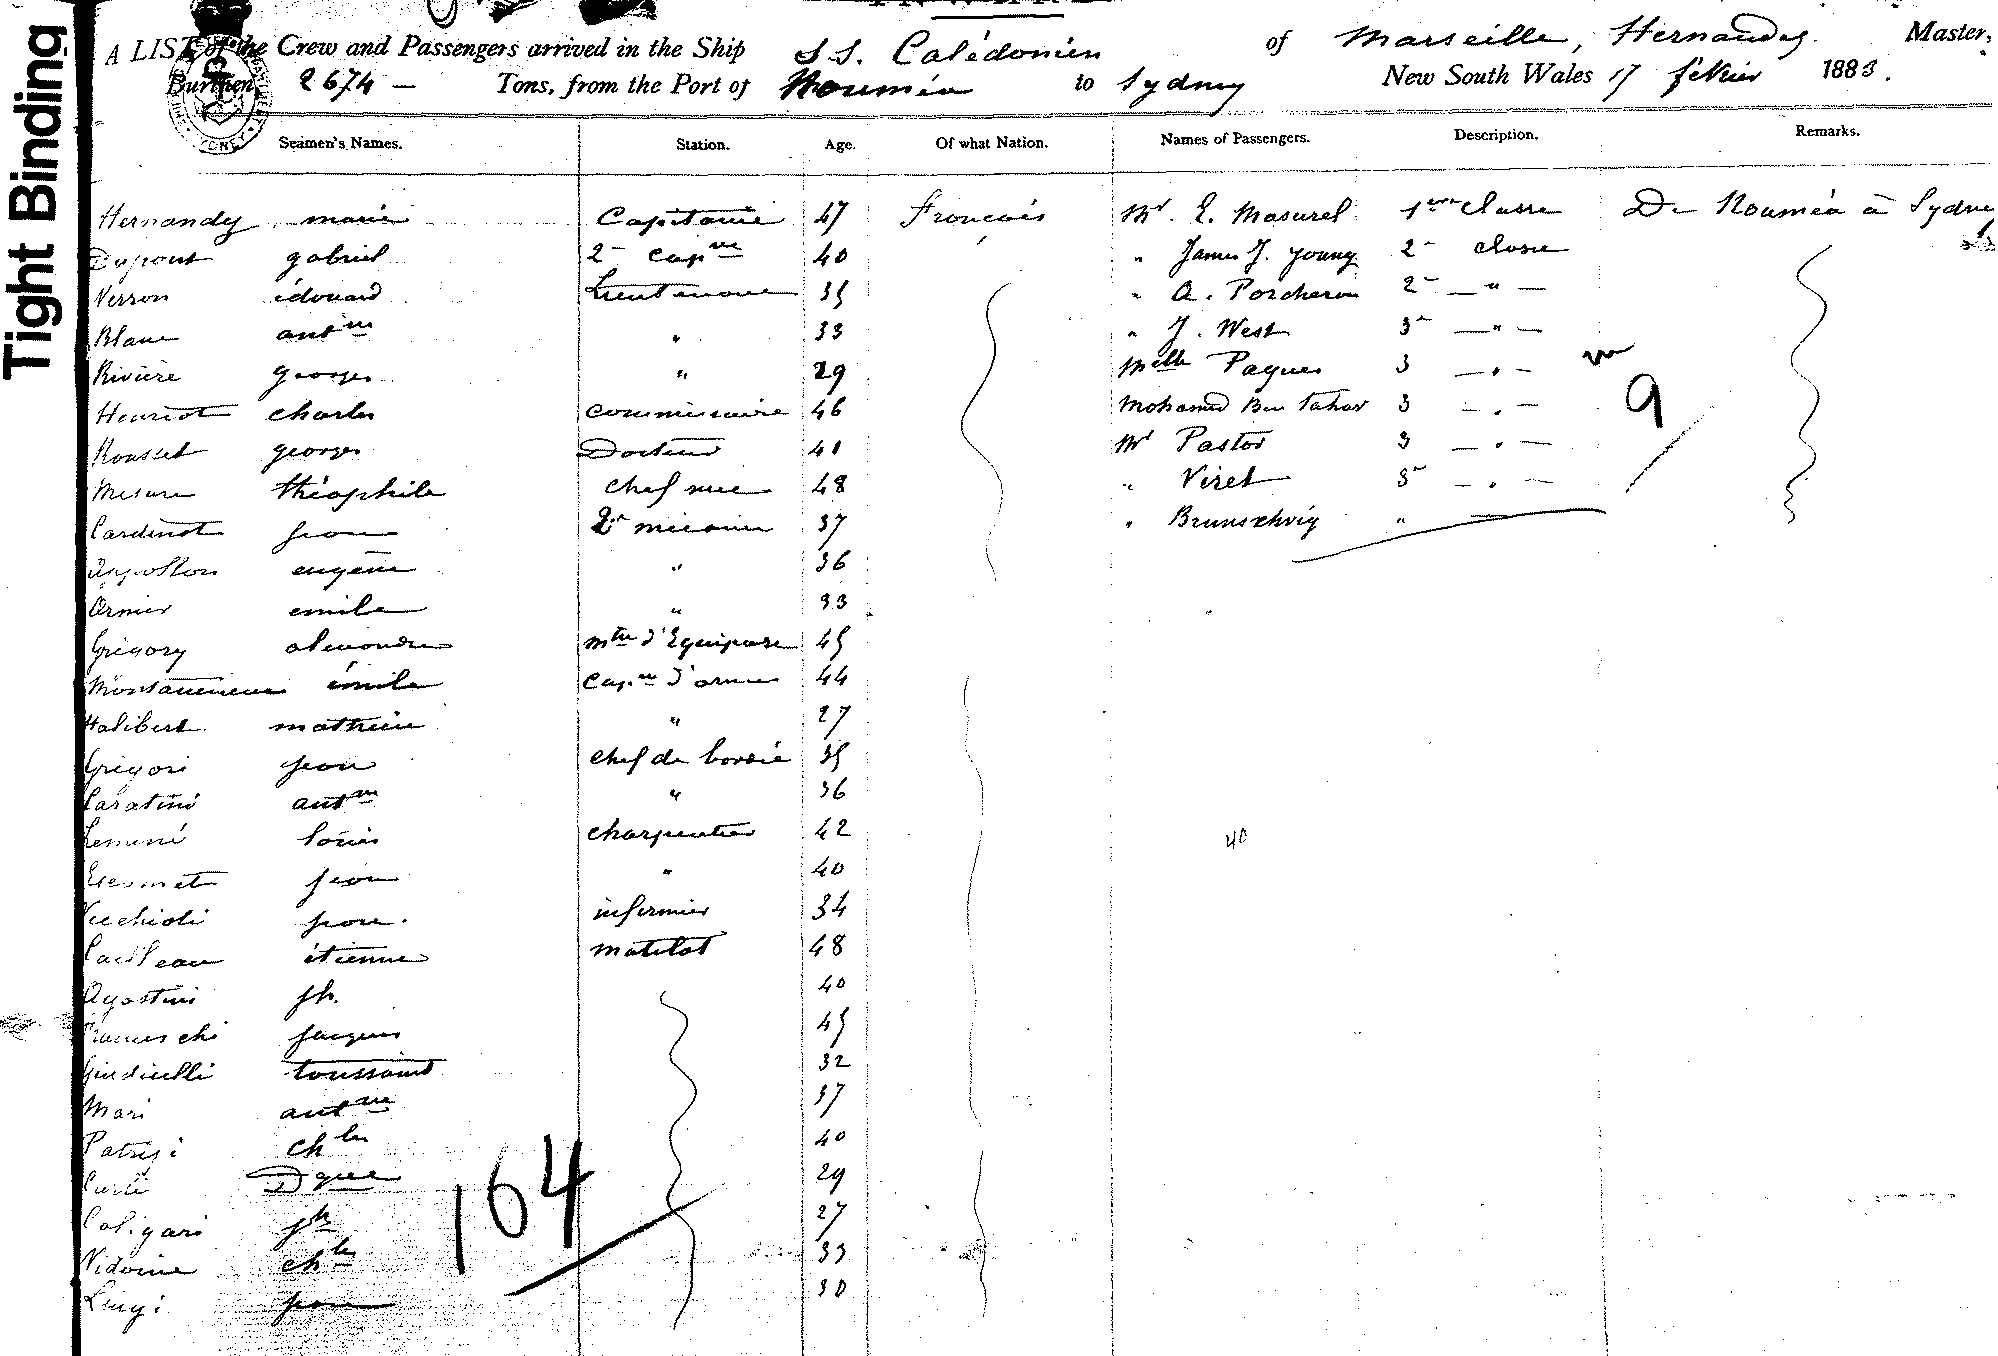 Tight Binding
INWARD
A LIST of the Crew and Passengers arrived in the Ship S.S. Calédonien of Marseille, Hernandez Master,
Burthen, 2674 — Tons, from the Port of Nouméa to Sydney New South Wales 17 février 1883.
Seamen's Names. Station. Age. Of what Nation. Names of Passengers. Description. Remarks.
Hernandez marie Capitaine 47 français Mr. E. Masurel 1ère Classe De Nouméa à Sydney
Dupont gabriel 2e Capne 40 " James J. Young 2e classe
Verron édouard Lieutenant 35 " A. Porcheron 2e — " —
Blanc antne " 33 " J. West 3e — " —
Rivière georges " 29 Melle Paques 3 — " —
Henriot charles commissaire 46 Mohamed Ben Tahar 3 — " — 9
Rousset georges Docteur 41 Mr Pastor 3 — " —
Mesure théophile chef mec 48 " Viret 3e — " —
Cardinot jean 2e mécanicien 37 " Brunschvig "
eugène " 36
Armier emile " 33
Grégory alexandre mtre d'Equipage 45
émile Capne d'armes 44
Halibert mathieu " 27
Grigori jean chef de bordée 35
Caratini antne " 36
Lemené louis charpentier 42 40
jean " 40
Vecchioli jean infirmier 34
Cailleau étienne matelot 48
Agostini jh. 40
Franceschi jacques 45
Giudicelli toussaint 32
Mari antne 37
Patrizi chles 40
Curli Dque 29
164
Caligari jh 27
Vidoine chles 33
Luigi jean 30